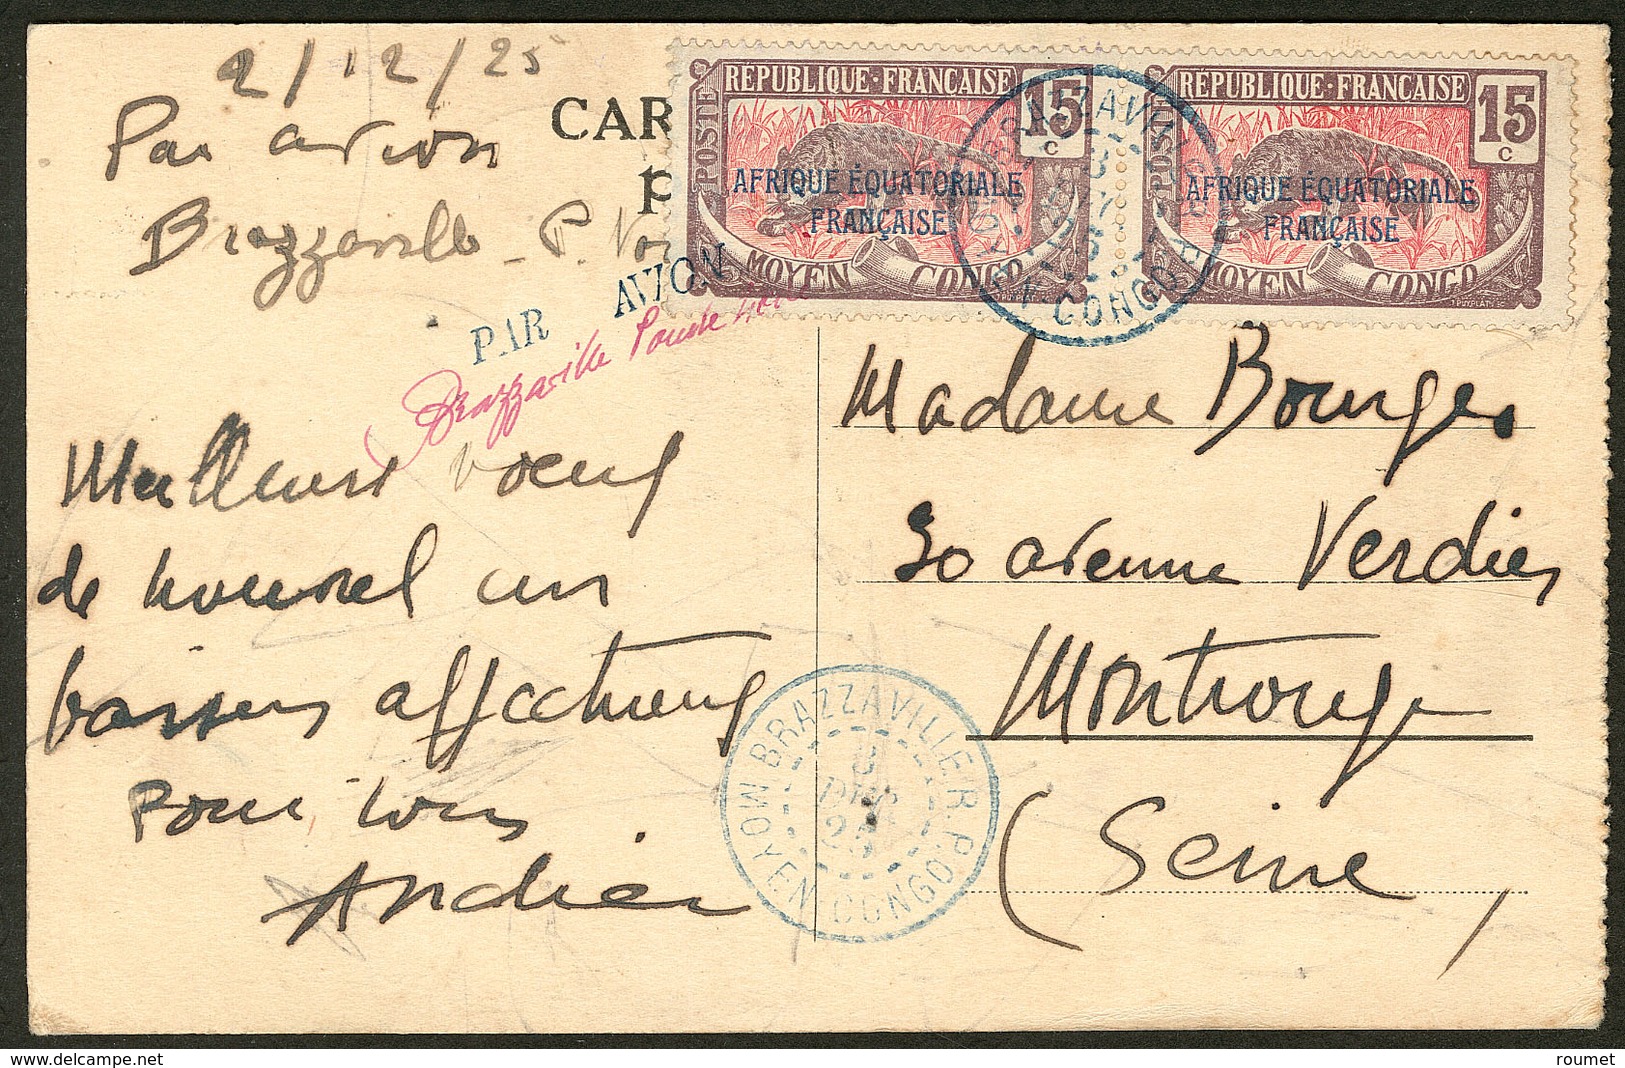 2/12/25
Par avion
Brazzaville - P. Noi
CAR
P
RÉPUBLIQUE·FRANÇAISE
POSTE
15
c
AFRIQUE ÉQUATORIALE
FRANÇAISE
MOYEN CONGO
RÉPUBLIQUE·FRANÇAISE
POSTE
15
c
AFRIQUE ÉQUATORIALE
FRANÇAISE
MOYEN CONGO
J. PUYPLAT SC.
BRAZZAVILLE R.P.
MOYEN CONGO
PAR AVION
Brazzaville Pointe Noire
Meilleurs voeux
de nouvel an
baisers affectueux
pour tous
André
Madame Bourges
30 avenue Verdier
Montrouge
(Seine)
BRAZZAVILLE R.P.
3
DEC
25
MOYEN CONGO
roumet — delcampe.net